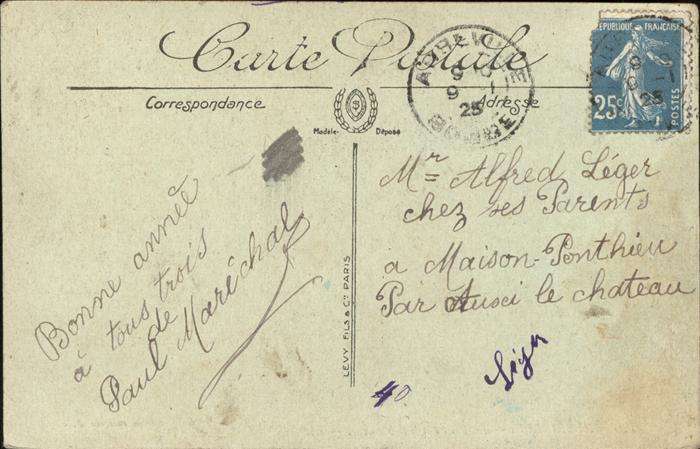 Carte Postale
Correspondance
Adresse
Modèle Déposé
RÉPUBLIQUE FRANÇAISE
25c
POSTES
SOMME
9
25
Bonne année
à tous trois
de
Paul Maréchal
LEVY FILS & Cie PARIS
Mr Alfred Léger
chez ses Parents
a Maison-Ponthieu
Par Auxi le chateau
40